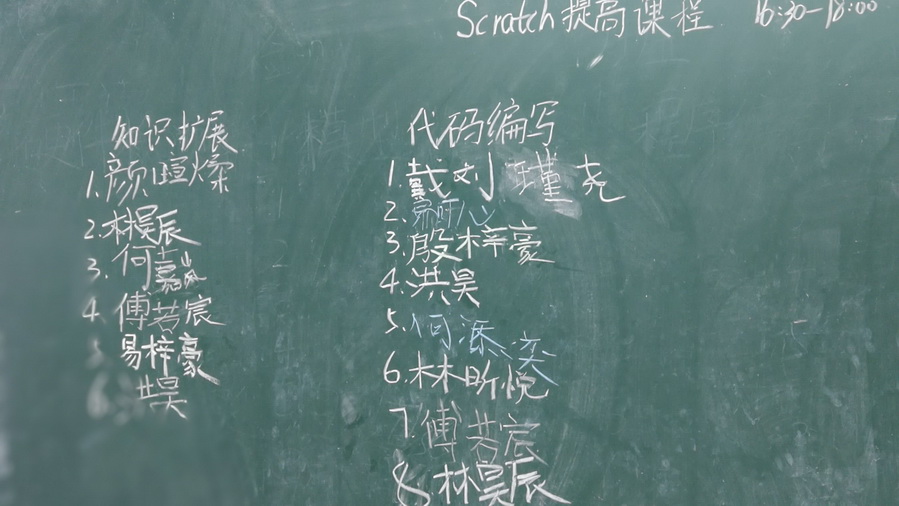 Scratch提高课程 16:30-18:00
知识扩展
1.颜暄燦
2.林昊辰
3.何嘉
4.傅若宸
易梓豪
昊
代码编写
1.戴刘瑾尧
2.
3.殷梓豪
4.洪昊
5.何添奕
6.林昕悦
7傅若宸
8.林昊辰